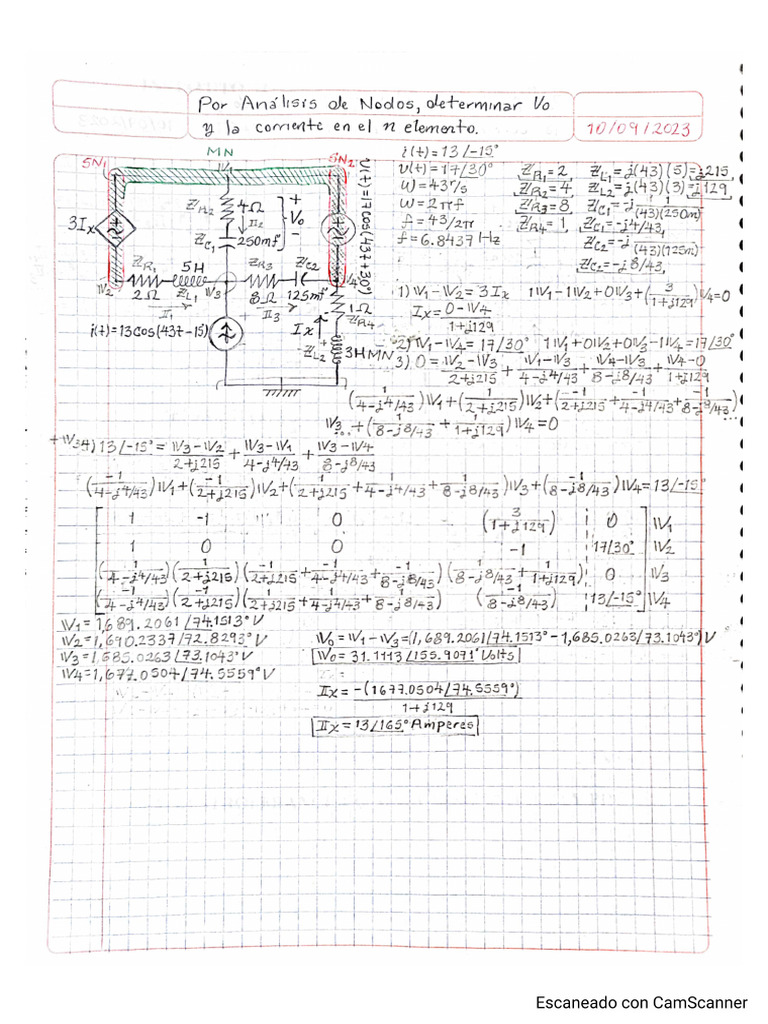 Por Análisis de Nodos, determinar Vo
y la corriente en el n elemento.
10/09/2023
MN
SN1
V1
SN2
3Ix
ZR2
4Ω
I2
ZC1
250mf
+
Vo
-
v(t)=17cos(43t+30°)
ZR1
5H
ZR3
ZC2
V2
2Ω
ZL1
V3
8Ω
125mf
V4
I1
I3
1Ω
ZR4
Ix
i(t)=13cos(43t-15)
ZL2
3H
MN
i(t)=13/-15°
v(t)=17/30°
ω=43r/s
ω=2πf
f=43/2π
f=6.8437Hz
ZR1=2, ZL1=j(43)(5)=j215
ZR2=4, ZL2=j(43)(3)=j129
ZR3=8, ZC1=-j 1/(43)(250m)
ZR4=1, ZC1=-j4/43,
ZC2=-j 1/(43)(125m)
ZC2=-j8/43,
1) V1-V2=3Ix 1V1-1V2+0V3+(3/1+j129)V4=0
Ix=0-V4/1+j129
2) V1-V4=17/30° 1V1+0V2+0V3-1V4=17/30°
3) 0=V2-V3/2+j215+V1-V3/4-j4/43+V4-V3/8-j8/43+V4-0/1+j129
(1/4-j4/43)V1+(1/2+j215)V2+(-1/2+j215+-1/4-j4/43+-1/8-j8/43)
V3+(1/8-j8/43+1/1+j129)V4=0
4) 13/-15°=V3-V2/2+j215+V3-V1/4-j4/43+V3-V4/8-j8/43
(-1/4-j4/43)V1+(-1/2+j215)V2+(1/2+j215+1/4-j4/43+1/8-j8/43)V3+(-1/8-j8/43)V4=13/-15°
1 -1 0 (3/1+j129) 0 V1
1 0 0 -1 17/30° V2
(1/4-j4/43)(1/2+j215)(-1/2+j215+-1/4-j4/43+-1/8-j8/43)(1/8-j8/43+1/1+j129) 0 V3
(-1/4-j4/43)(-1/2+j215)(1/2+j215+1/4-j4/43+1/8-j8/43) (-1/8-j8/43) 13/-15° V4
V1=1,689.2061/74.1513°V
V2=1,690.2337/72.8293°V Vo=V1-V3=(1,689.2061/74.1513°-1,685.0263/73.1043°)V
V3=1,685.0263/73.1043°V Vo=31.1113/155.9071° Volts
V4=1,677.0504/74.5559°V
Ix=-(1677.0504/74.5559°)
1+j129
Ix=13/165° Amperes
Escaneado con CamScanner